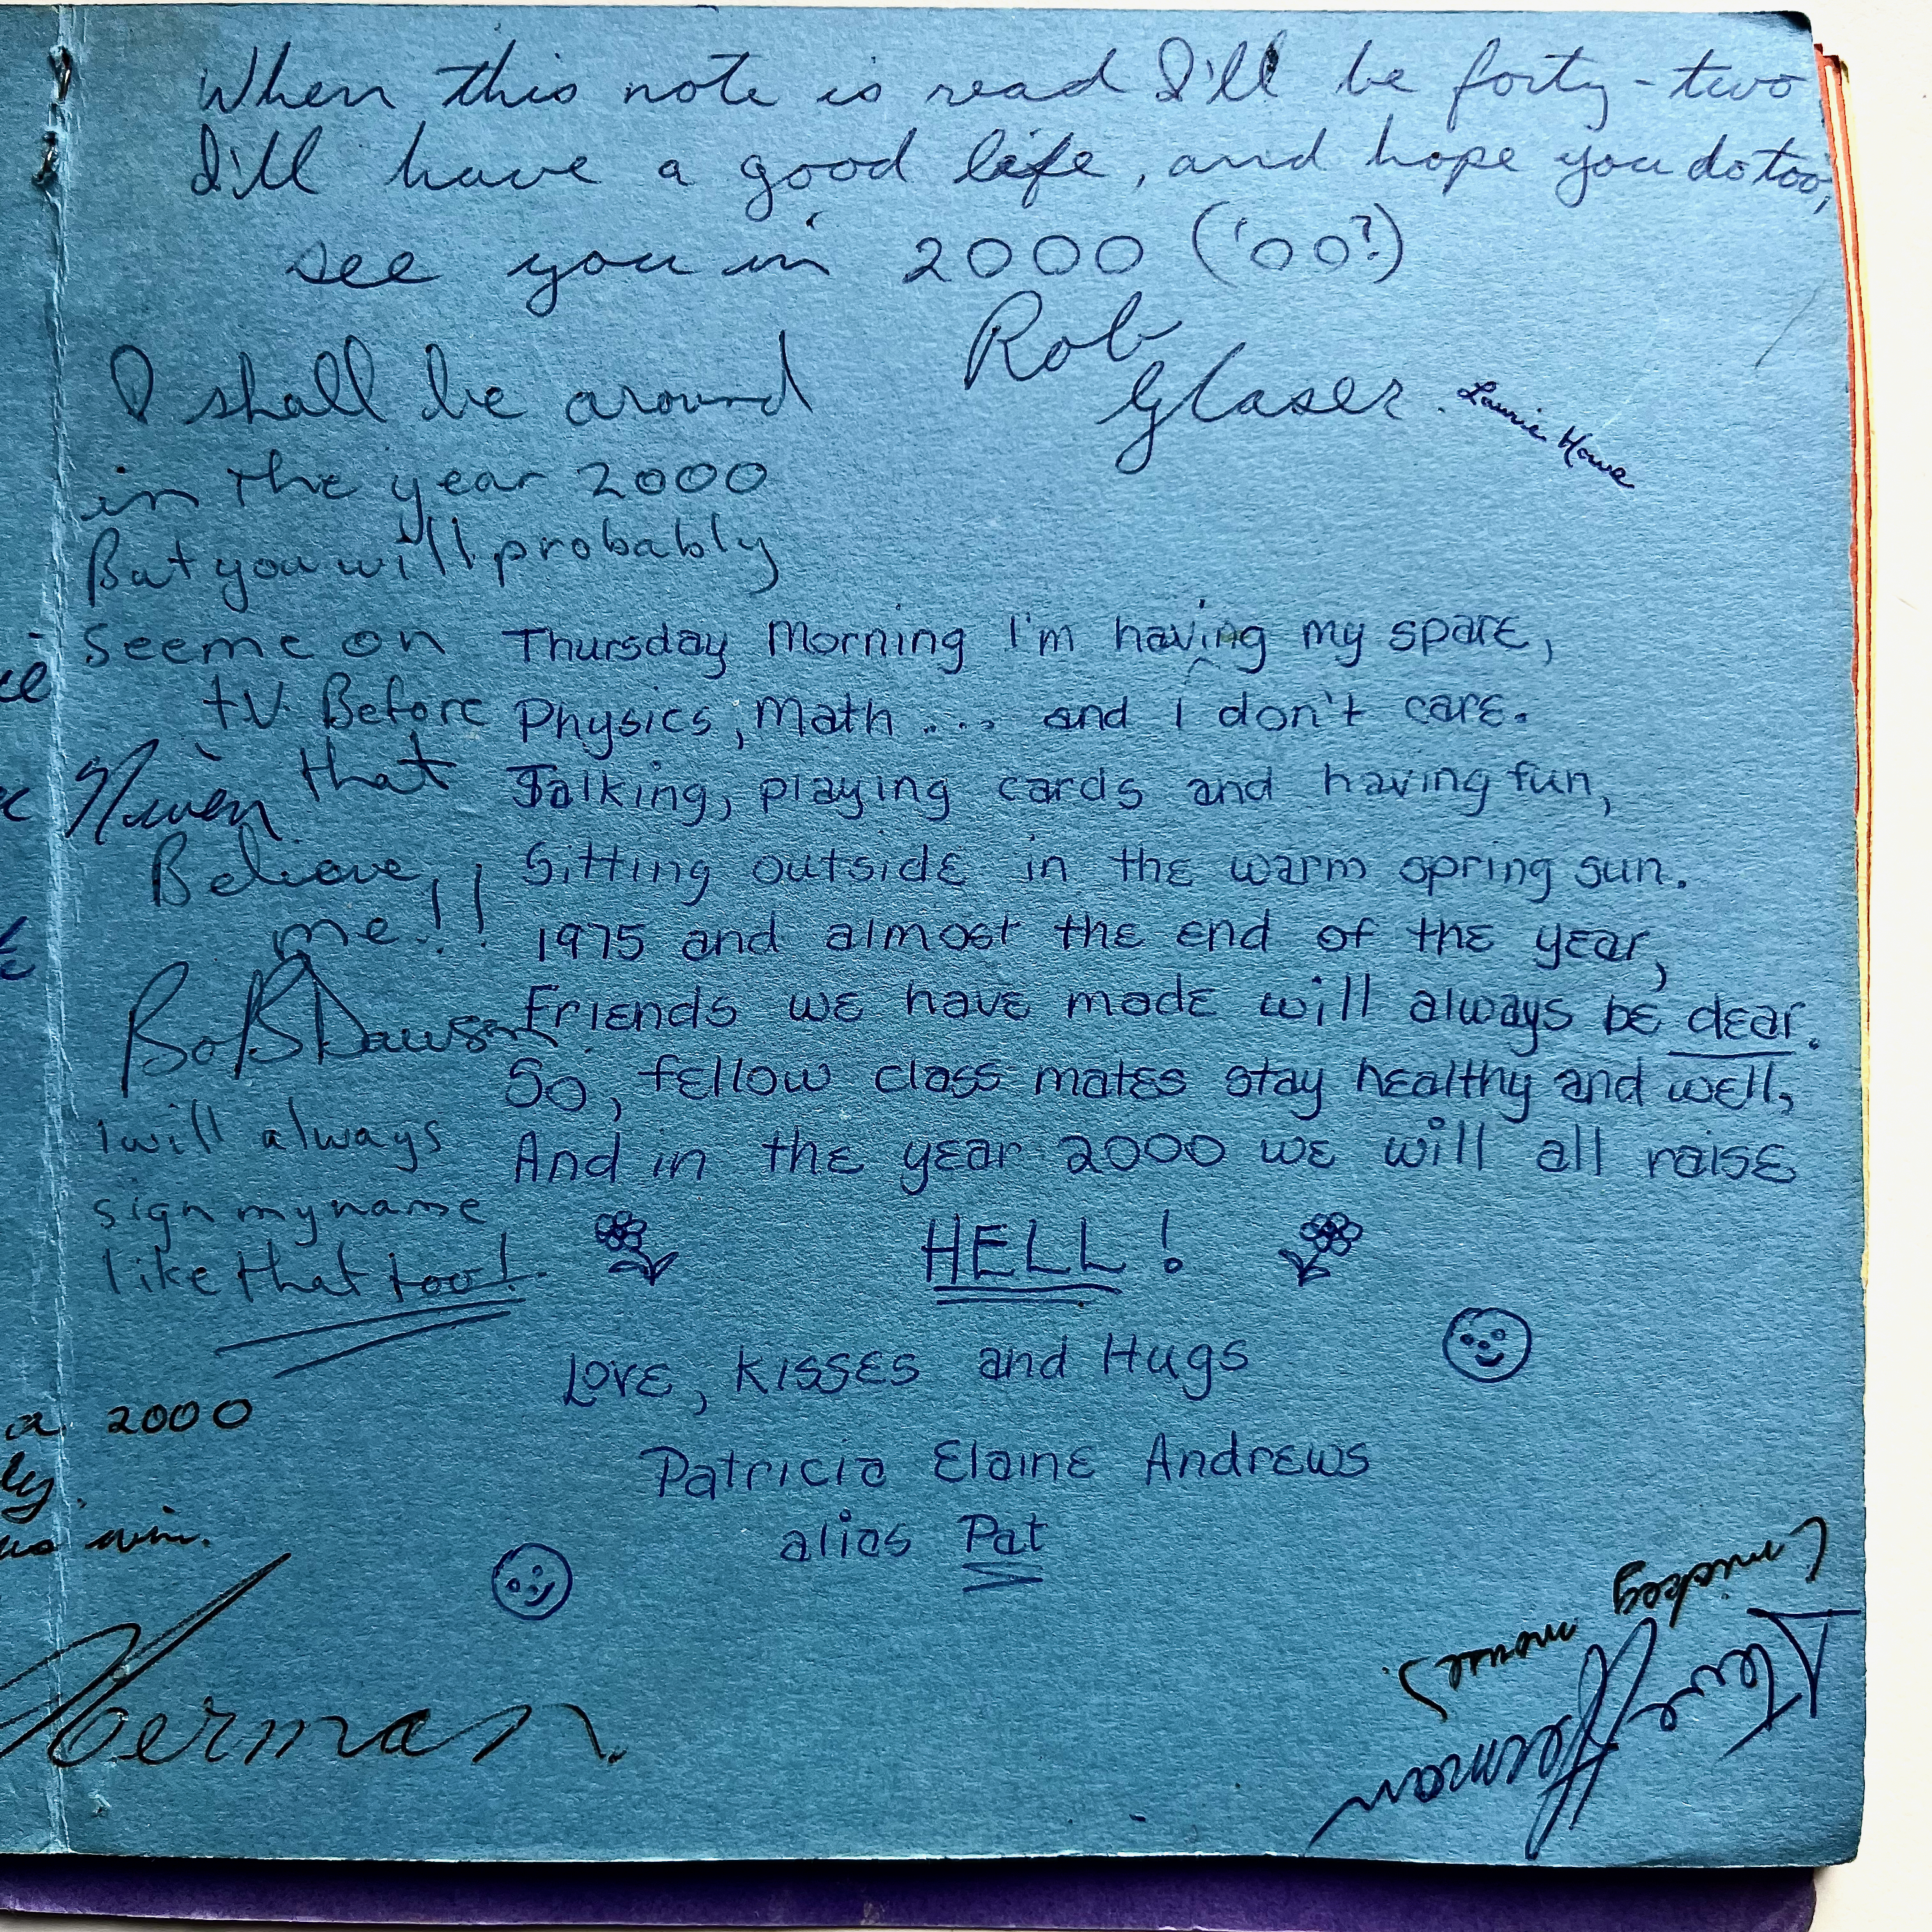 When this note is read I'll be forty-two
I'll have a good life, and hope you do too,
see you in 2000 ('00?)
Rob
Glaser.
Laurie Howe
I shall be around
in the year 2000
But you will probably
see me on
t.V. Before
that
Believe
me!!
Bob Dawson
I will always
sign my name
like that too!
Thursday Morning I'm having my spare,
Physics, Math .... and I don't care.
Talking, playing cards and having fun,
Sitting outside in the warm spring sun.
1975 and almost the end of the year,
Friends we have made will always be dear.
So, fellow class mates stay healthy and well,
And in the year 2000 we will all raise
HELL!
Love, Kisses and Hugs
Patricia Elaine Andrews
alias Pat
2000
Herman.
(mickey
mouse).